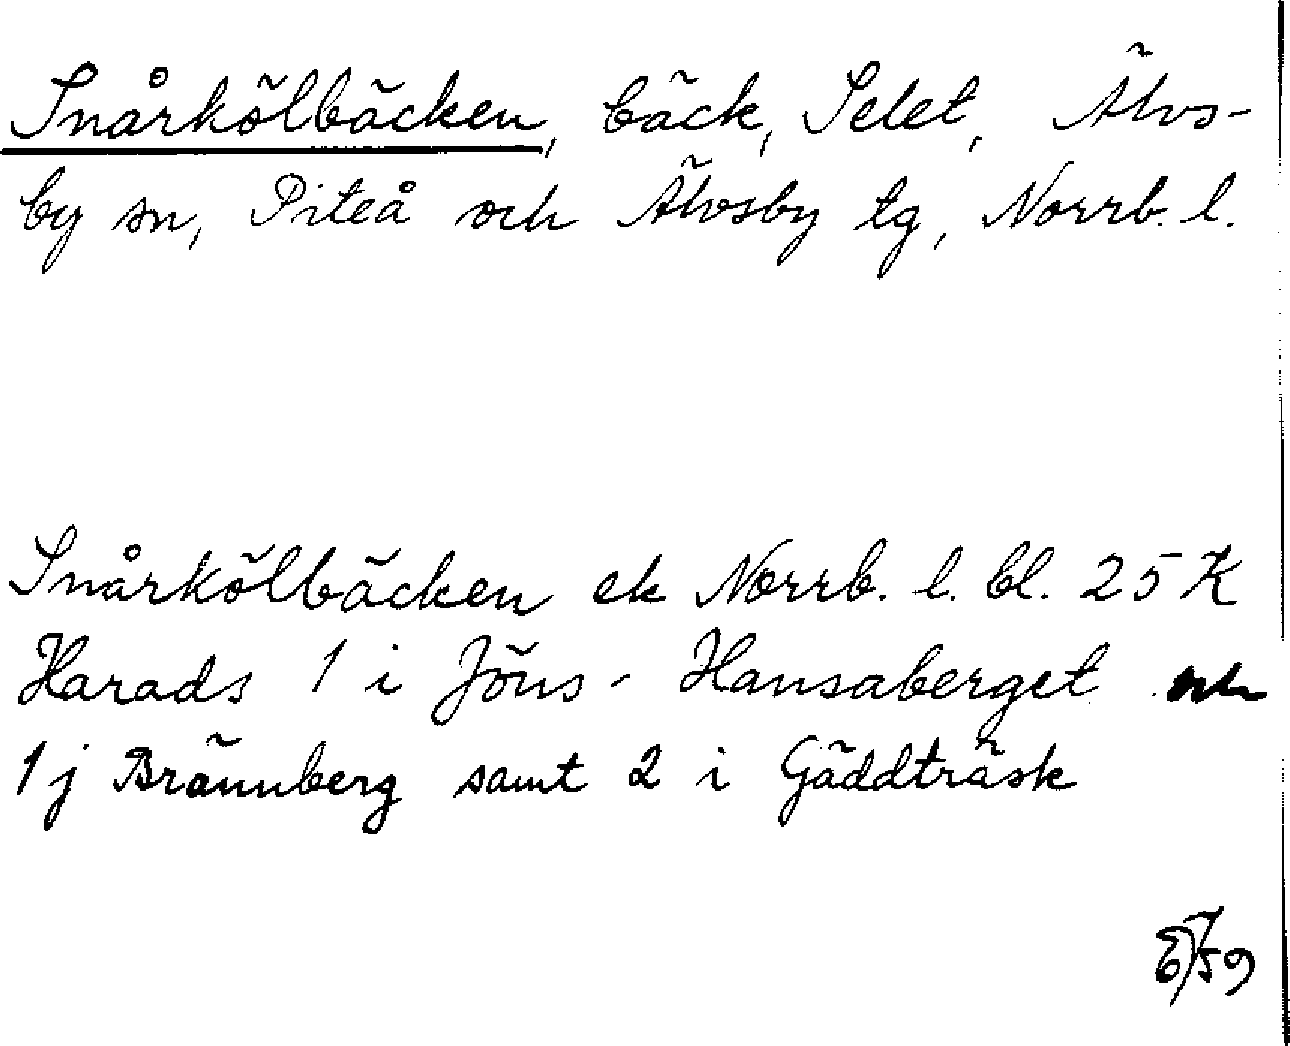 Snårkölbäcken, bäck, Selet, Älvs-
by sn, Piteå och Älvsby tg, Norrb. l.
Snårkölbäcken ek Norrb. l. bl. 25 K
Harads 1 i Jöns-Hansaberget och
1 j Brännberg samt 2 i Gäddträsk